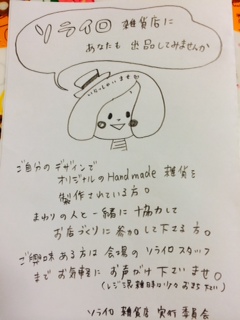 ソライロ 雑貨店に
あなたも 出品してみませんか
いらっしゃいませ
ご自分の デザインで
オリジナルの Handmade 雑貨を
製作されている方。
まわりの人と一緒に協力して
お店づくりに参加して下さる方。
ご興味ある方は 会場の ソライロ スタッフ
まで お気軽に お声がけ 下さいませ。
ソライロ 雑貨店 実行委員会